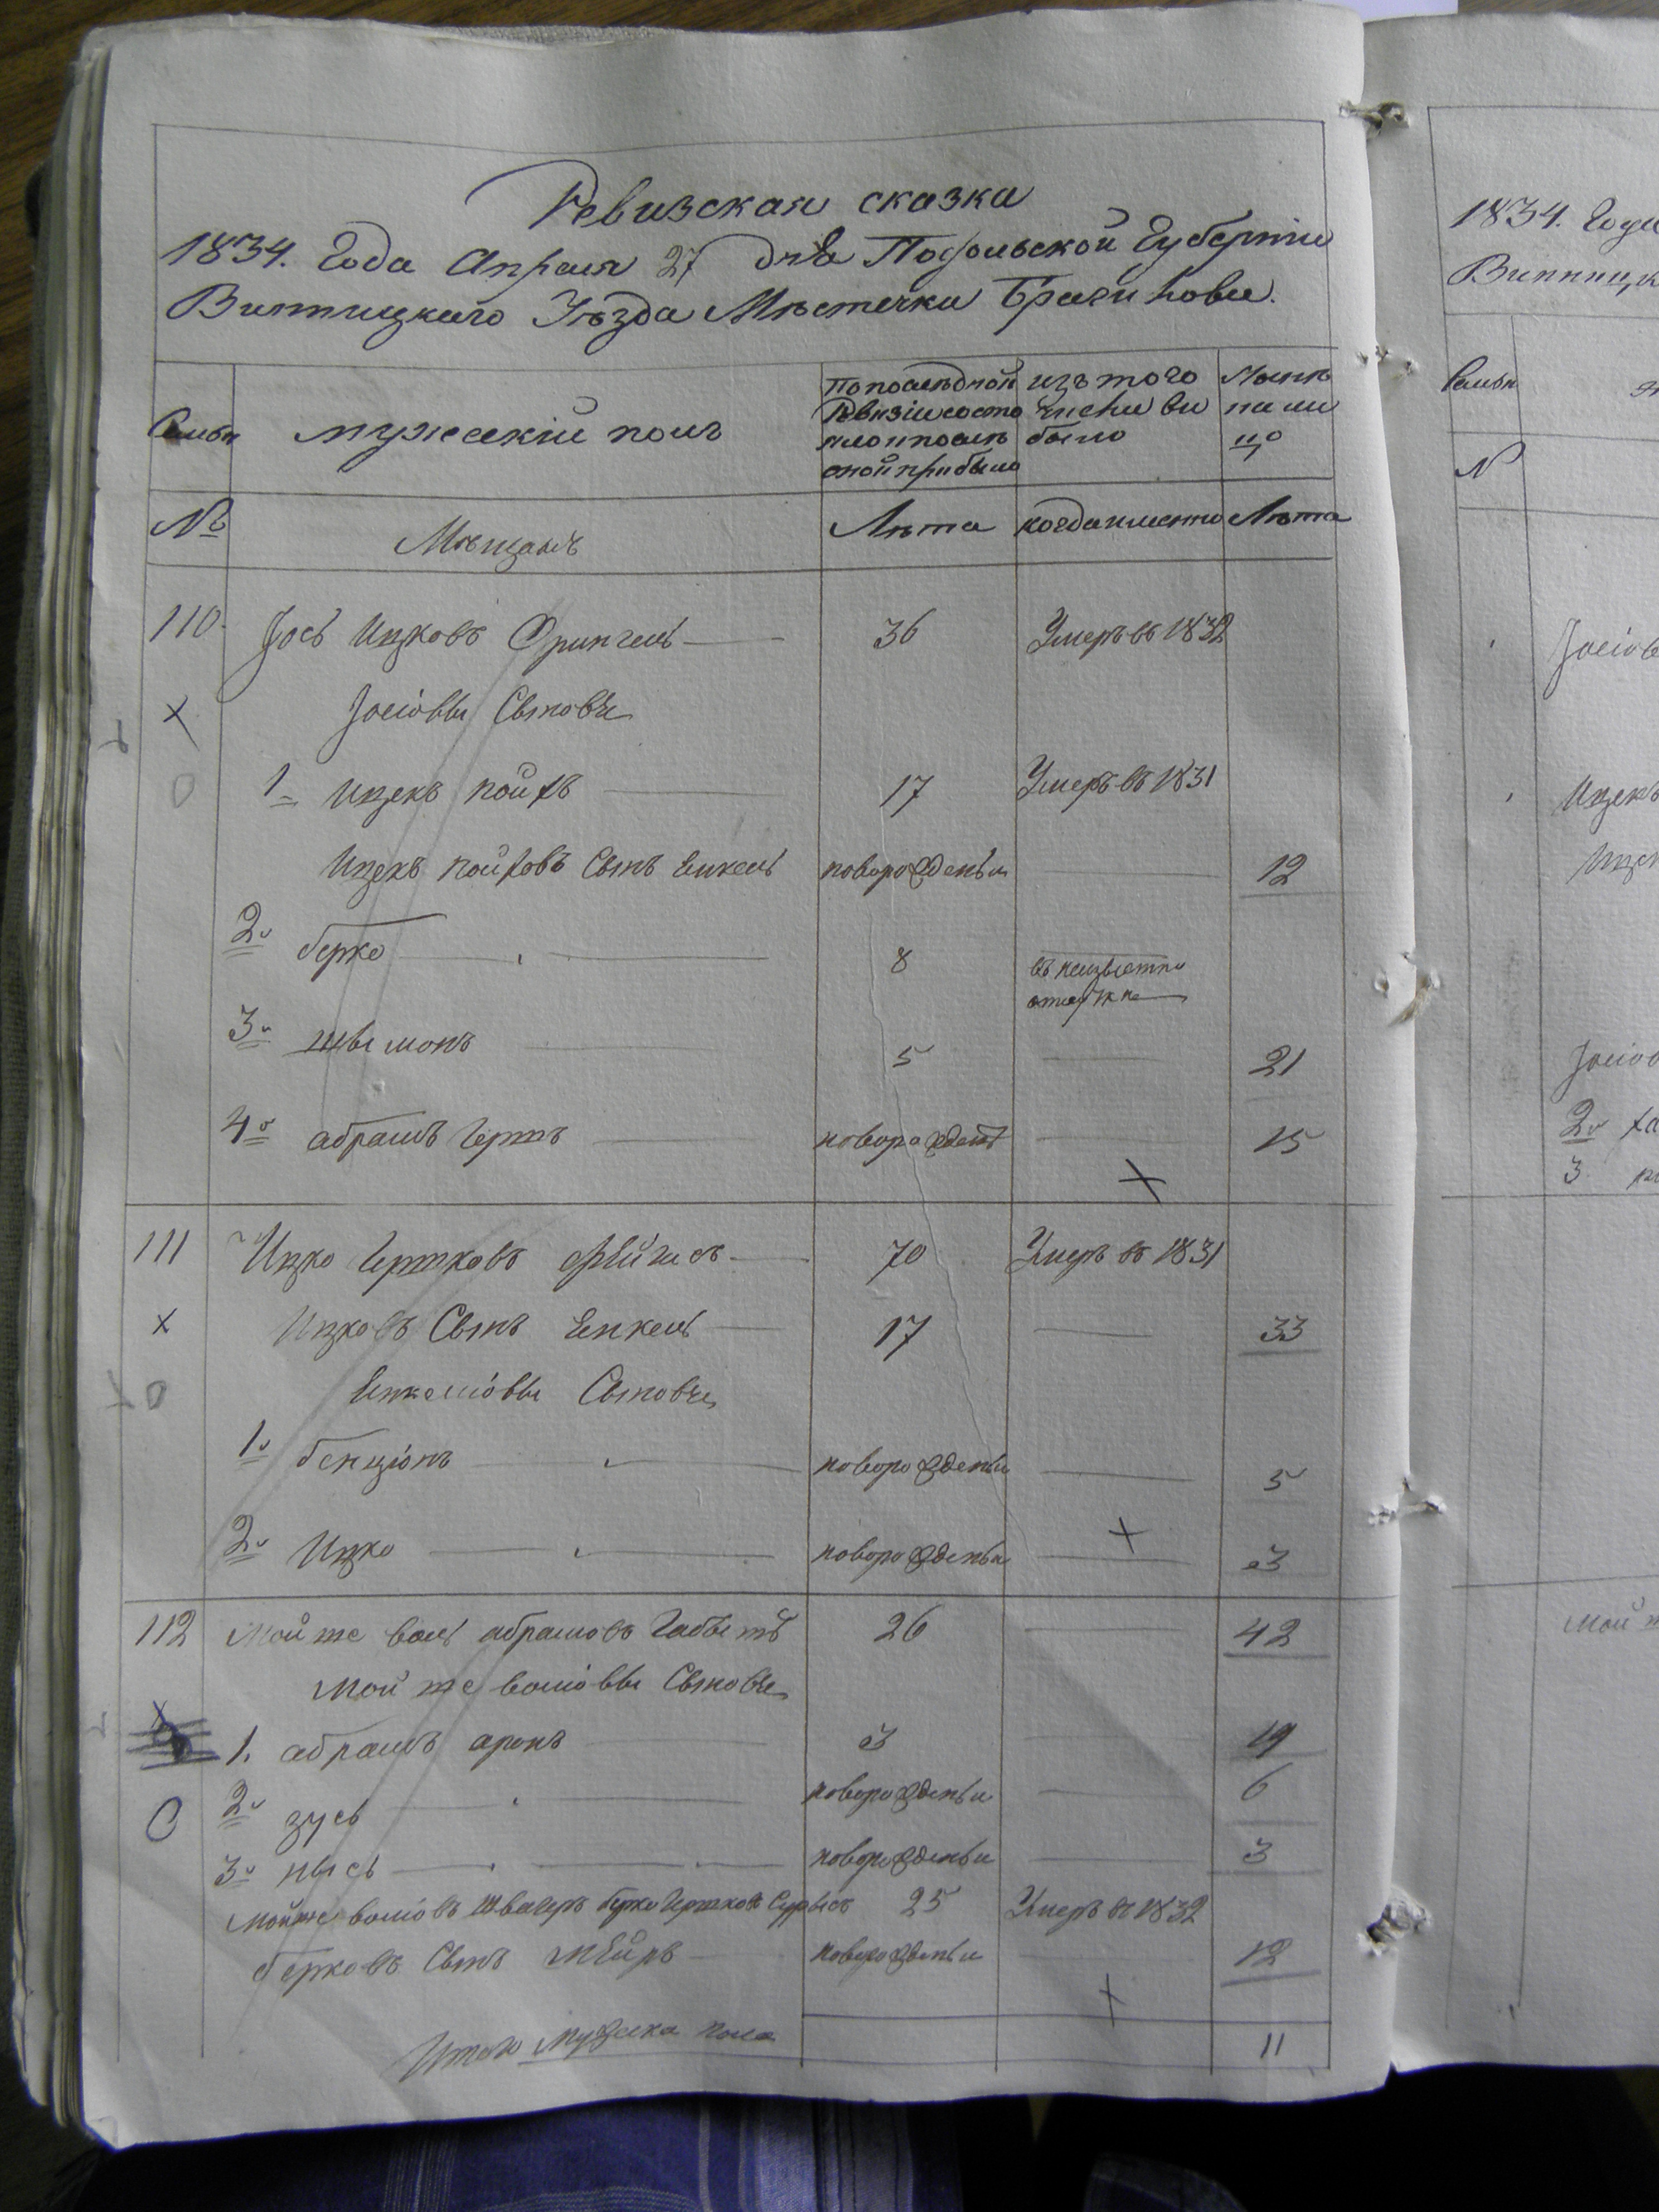 Ревизская сказка
1834. Года Апреля 27 дня Подольской Губернии
Винницкаго Уѣзда Мѣстечка Браилова.
Семьи мужескій полъ По послѣдной Ревизіи состо яло и послѣ оной прибыло изъ того числа вы было Нынѣ на ли цо
№ Мѣщанъ Лѣта когда именно Лѣта
110. Іось Ицковъ Фрингель 36 Умеръ въ 1832
Іосіовы Сыновья
1 Ицекъ Пойхъ 17 Умеръ въ 1831
Ицекъ Пойховъ Сынъ Енкель новорожденъи 12
2й берко 8 въ неизвѣстно отлучке
3й шымонъ 5 21
4й абрамъ герты новорожденъ 15
111 Ицко Гершковъ 70 Умеръ въ 1831
Ицковъ Сынъ Енкель 17 33
Енкеліовы Сыновья
1й бенціонъ новорожденъи 5
2й Ицко новорожденъи 3
112 Мойше воль абрамовъ 26 42
Мойше воліовы Сыновья
1. абрамъ аронъ 3 19
2й зусь новорожденъи 6
3й нысь новорожденъи 3
Мойше воліовъ швагеръ берко Гершковъ 25 Умеръ въ 1832
берковъ Сынъ мейръ новорожденъи 12
Итого Мужеска пола 11
1834. Года
Винницк
Семьи
№
Іосіов
Ицекъ
Ицек
Іосіов
2й
3.
Мойш